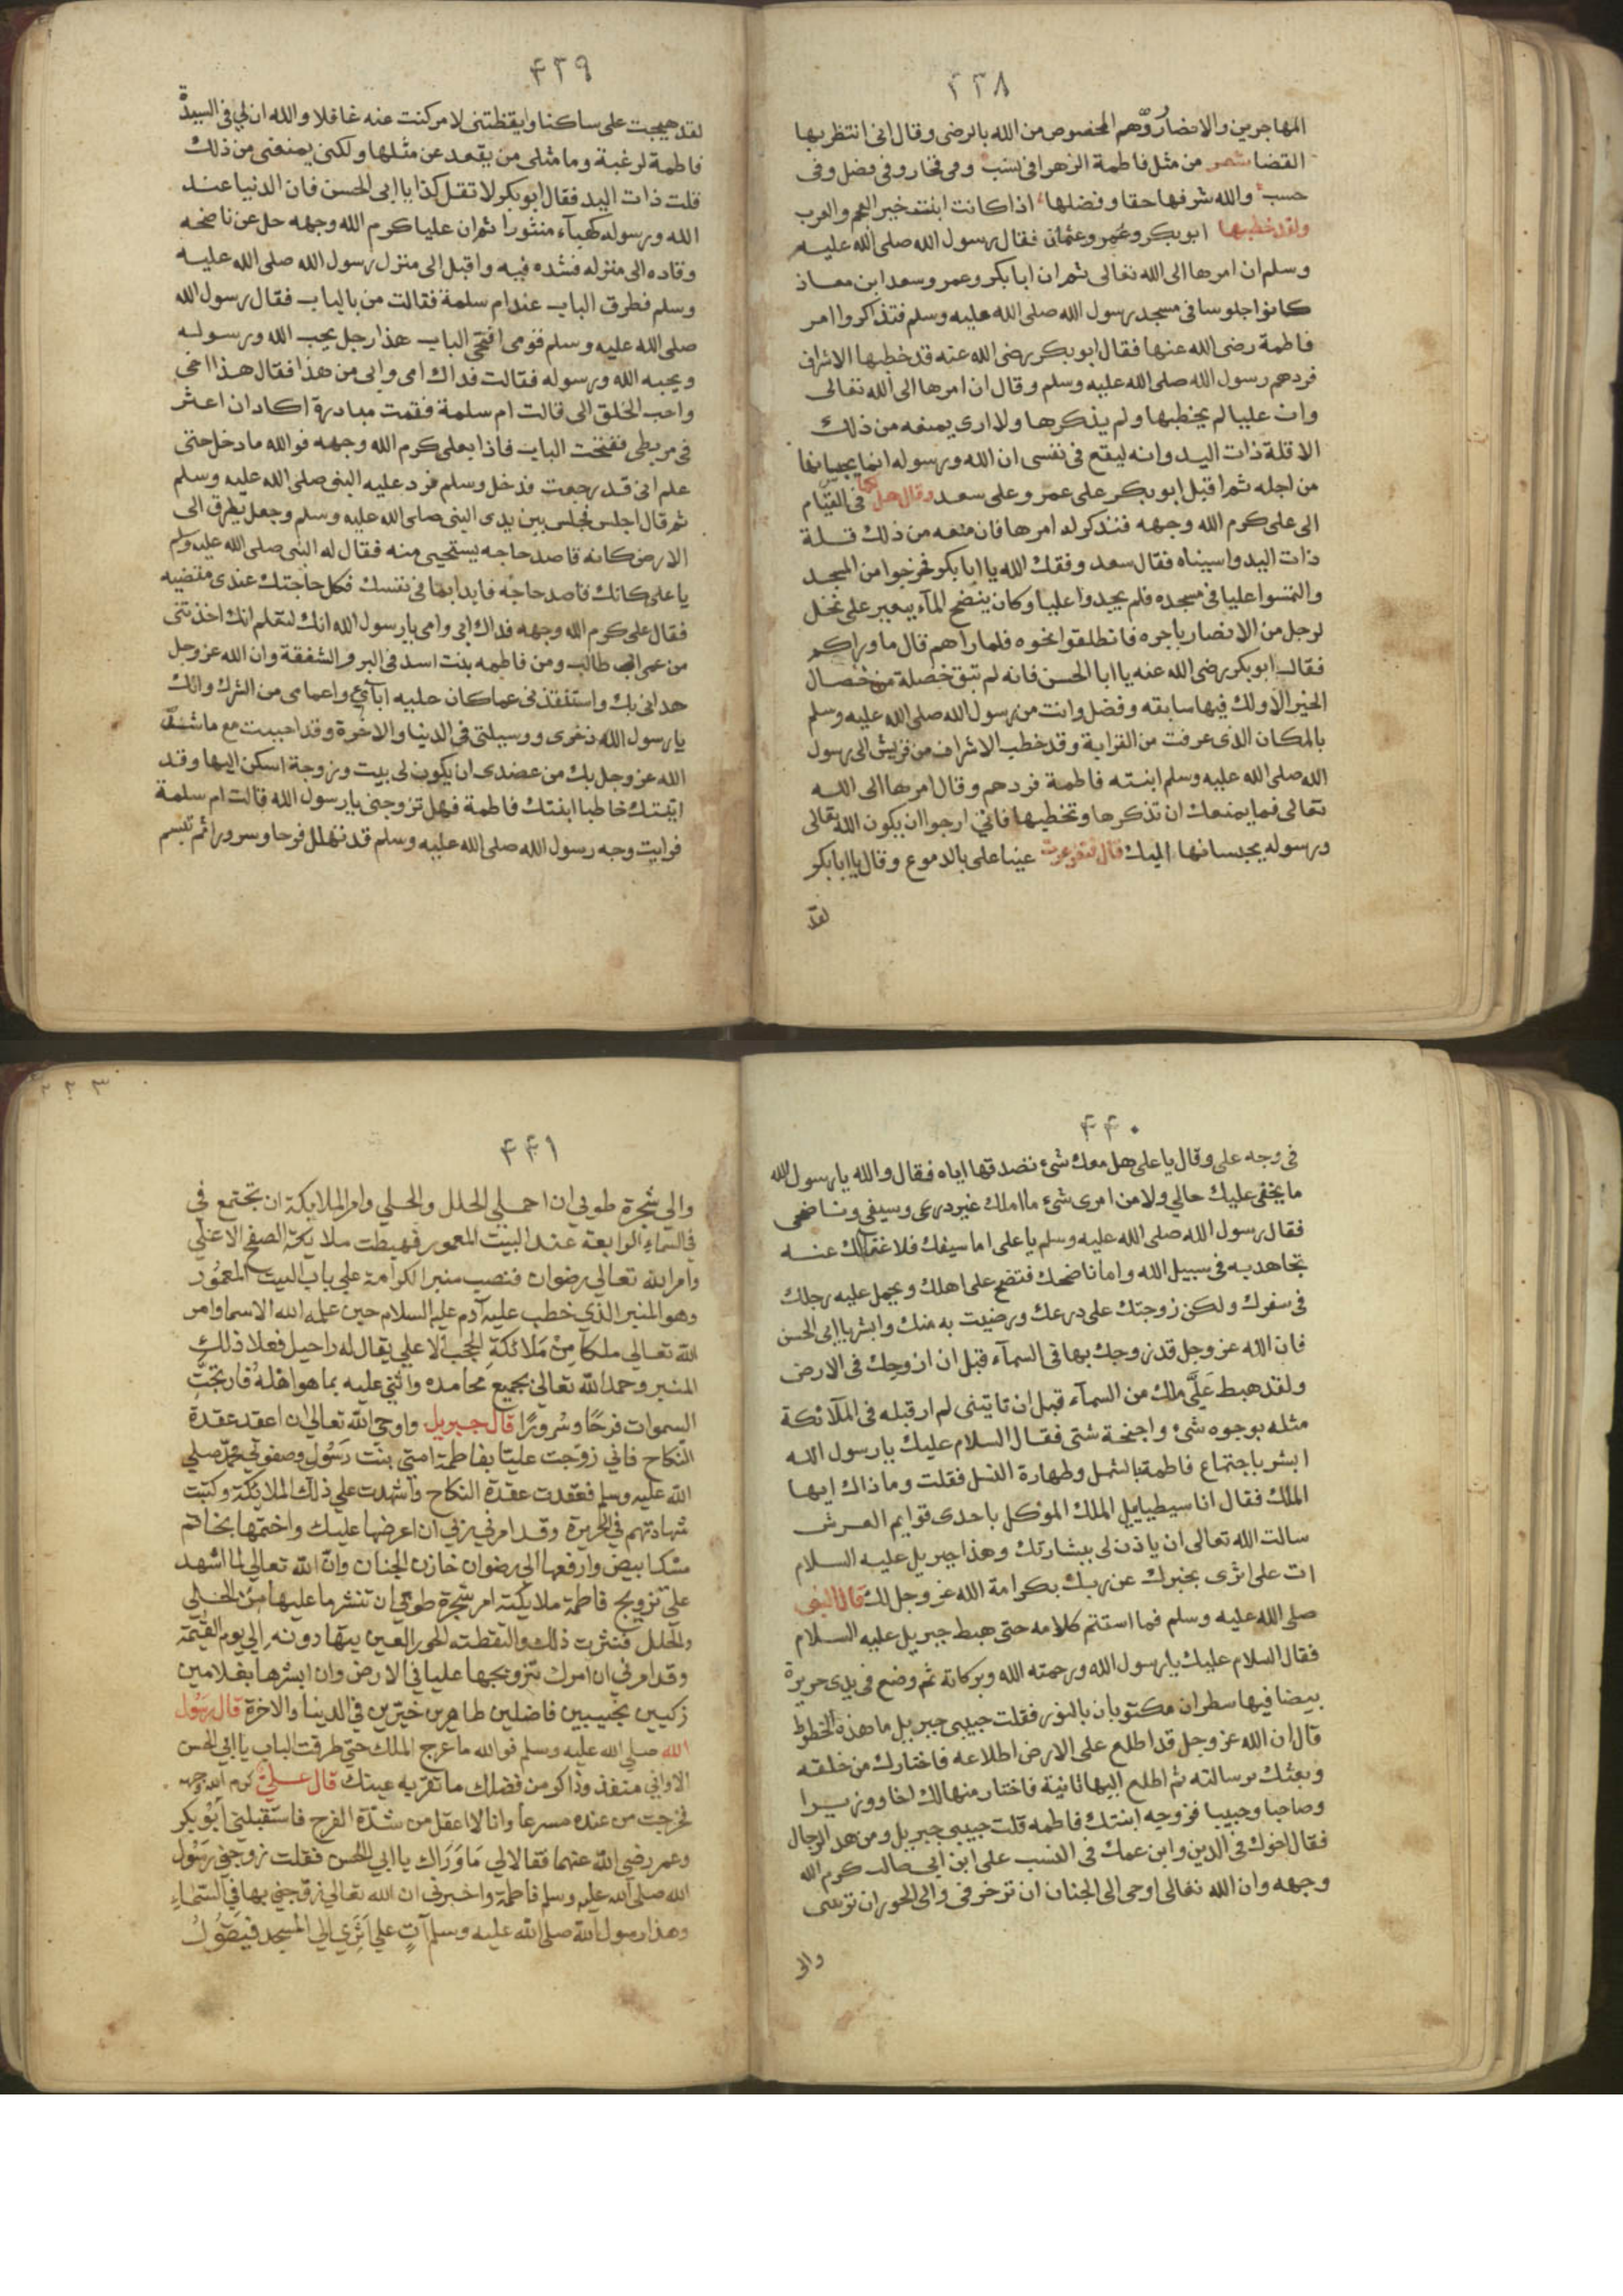 ٤٣٨
المهاجرين والانصار وهم المخصوص من الله بالرضى وقال انى انتظر بها
القضا شعر من مثل فاطمة الزهرا فى نسب وفى فخار وفى فضل وفى
حسب والله شرفها حقا وفضلها اذ كانت ابنت خير العجم والعرب
ولقد خطبها ابوبكر وعمر وعثمان فقال رسول الله صلى الله عليه
وسلم ان امرها الى الله تعالى ثم ان ابا بكر وعمر وسعد ابن معاذ
كانوا جلوسا فى مسجد رسول الله صلى الله عليه وسلم فتذاكروا امر
فاطمة رضى الله عنها فقال ابو بكر رضى الله عنه قد خطبها الاشراف
فردهم رسول الله صلى الله عليه وسلم وقال ان امرها الى الله تعالى
وان عليا لم يخطبها ولم يذكرها ولا ارى يمنعه من ذلك
الا قلة ذات اليد وانه ليقع فى نفسى ان الله ورسوله انما يحبسانها
من اجله ثم اقبل ابو بكر على عمر وعلى سعد وقال هل لكما فى القيام
الى على كرم الله وجهه فنذكر له امرها فان منعه من ذلك قلة
ذات اليد واسيناه فقال سعد وفقك الله يا ابا بكر فخرجوا من المسجد
والتمسوا عليا فى مسجده فلم يجدوا عليا وكان ينضح المآء ببعير على نخل
لرجل من الانصار باجره فانطلقوا نحوه فلما راهم قال ما وراكم
فقال ابو بكر رضى الله عنه يا ابا الحسن فانه لم تبق خصلة من خصال
الخير الا ولك فيها سابقه وفضل وانت من رسول الله صلى الله عليه وسلم
بالمكان الذى عرفت من القرابة وقد خطب الاشراف من قريش الى رسول
الله صلى الله عليه وسلم ابنته فاطمة فردهم وقال امرها الى الله
تعالى فما يمنعك ان تذكرها وتخطبها فانى ارجوا ان يكون الله تعالى
ورسوله يحبسانها اليك قال فتغرغرت عينا على بالدموع وقال يا ابا بكر
لقد
٤٣٩
لقد هيجت على ساكنا وايقظتنى لامر كنت عنه غافلا والله ان لى فى السيدة
فاطمة لرغبة وما مثلى من يقعد عن مثلها ولكن يمنعنى من ذلك
قلت ذات اليد فقال ابو بكر لا تقل كذا يا ابى الحسن فان الدنيا عند
الله ورسوله كهبآء منثورا ثم ان عليا كرم الله وجهه حل عن ناضحه
وقاده الى منزله فشده فيه واقبل الى منزل رسول الله صلى الله عليه
وسلم فطرق الباب عند ام سلمة فقالت من بالباب فقال رسول الله
صلى الله عليه وسلم قومى افتحى الباب هذا رجل يحب الله ورسوله
ويحبه الله ورسوله فقالت فداك امى وابى من هذا فقال هذا اخى
واحب الخلق الى قالت ام سلمة فقمت مبادرة اكاد ان اعثر
فى مرطى ففتحت الباب فاذا بعلى كرم الله وجهه فوالله ما دخل حتى
علم انى قد رجعت فدخل وسلم فرد عليه النبى صلى الله عليه وسلم
ثم قال اجلس فجلس بين يدى النبى صلى الله عليه وسلم وجعل يطرق الى
الارض كانه قاصد حاجه يستحيى منه فقال له النبى صلى الله عليه وسلم
يا على كانك قاصد حاجة فابدا بها فى نفسك فكل حاجتك عندى مقضيه
فقال على كرم الله وجهه فداك ابى وامى يا رسول الله انك لتعلم انك اخذتنى
من عمى ابى طالب ومن فاطمه بنت اسد فى البر والشفقة وان الله عز وجل
هدانى بك واستنقذنى عما كان عليه ابآئى واعمامى من الشرك وانك
يا رسول الله ذخرى ووسيلتى فى الدنيا والاخرة وقد احببت مع ما شد
الله عز وجل بك من عضدى ان يكون لى بيت وزوجة اسكن اليها وقد
اتيتك خاطبا ابنتك فاطمة فهل تزوجنى يا رسول الله قالت ام سلمة
فرايت وجه رسول الله صلى الله عليه وسلم قد تهلل فرحا وسرورا ثم تبسم
٤٤٠
فى وجه على وقال يا على هل معك شئ نصدقها اياه فقال والله يا رسول الله
ما يخفى عليك حالي ولا من امرى شئ ما املك غير درعى وسيفى وناضحى
فقال رسول الله صلى الله عليه وسلم يا على اما سيفك فلا غنالك عنه
تجاهد به فى سبيل الله واما ناضحك فتنضح على اهلك وتحمل عليه رحلك
فى سفرك ولكن زوجتك على درعك ورضيت به منك وابشر يا ابى الحسن
فان الله عز وجل قد زوجك بها فى السمآء قبل ان ازوجك فى الارض
ولقد هبط عَلَيَّ ملك من السمآء قبل ان تاتينى لم ار قبله فى الملآئكة
مثله بوجوه شئ واجنحة شتى فقال السلام عليك يا رسول الله
ابشر باجتماع فاطمة بالشمل وطهارة النسل فقلت وما ذاك ايها
الملك فقال انا سيطيابيل الملك الموكل باحدى قوايم العرش
سالت الله تعالى ان ياذن لى ببشارتك وهذا جبريل عليه السلام
ات على اثرى يخبرك عن ربك بكرامة الله عز وجل لك قال النبى
صلى الله عليه وسلم فما استتم كلامه حتى هبط جبريل عليه السلام
فقال السلام عليك يا رسول الله ورحمته الله وبركاته ثم وضع فى يدى حريرة
بيضا فيها سطران مكتوبان بالنور فقلت حبيبى جبريل ما هذه الخطوط
قال ان الله عز وجل قد اطلع على الارض اطلاعه فاختارك من خلقه
وبعثك برسالته ثم اطلع اليها ثانية فاختار منها لك اخا ووزيرا
وصاحبا وحبيبا فزوجه ابنتك فاطمه قلت حبيبى جبريل ومن هذ الرجال
فقال اخوك فى الدين وابن عمك فى النسب على ابن ابى طالب كرم الله
وجهه وان الله تعالى اوحى الى الجنان ان تزخرفى والى الحور ان تزينى
والى
٤٤١
والي شجرة طوبى ان احملى الحلل والحلي وامر الملايكة ان تجتمع في
في السَّمآءِ الرابعة عند البيت المعمور فهبطت ملايكة الصفح الاعلي
وامر الله تعالي رضوان فنصب منبر الكرامة علي باب البيت المعمُور
وهو المنبر الذي خطب عليه آدم عليه السلام حين علمه الله الاسما وامر
الله تعالي ملكًا مِنْ مَلائكةِ الحجب الاعلي يقال له راحيل فعلا ذلك
المنبر وحمد الله تعالي بجميع محامده واثني عليه بما هو اهلهُ فارتجَّتِ
السموات فرحًا وسُرورًا قال جبريل واوحي الله تعالي ان اعقد عقدة
النكاح فاني زوّجت عليّا بفاطمة امتي بنت رَسُولي وصفوتي محمد صلي
الله عليه وسلم فعقدت عقدة النكاح واشهدت علي ذلك الملايكة وكتبت
شهادتهم في الحريرة وقد امرني ربي ان اعرضها عليك واختمها بخاتم
مسك ابيض وارفعها الي رضوان خازن الجنان وان الله تعالي لما اشهد
علي تزويج فاطمة ملايكته امر شجرة طوبى ان تنثر ما عليها من الحلي
والحلل فنثرت ذلك والتقطته الحور العين يتهادونه الي يوم القيٰمة
وقد امرني ان امرك بتزويجها عليا في الارض وان ابشرها بغلامين
زكيين نجيبين فاضلين طاهرين خيّرين في الدينا والاخرة قال رسُول
الله صلي الله عليه وسلم فوالله ما عرج الملك حتي طرقت الباب يا ابي الحسن
الا واني منفذ وذاكر من فضلك ما تقر به عينك قال علىّ كرم الله وجهه
فخرجت من عنده مسرعا وانا لا اعقل من شدّة الفرح فاستقبلني اَبُو بكر
وعمر رضي الله عنهما فقالا لي مَا وَرَاك يا ابي الحسن فقلت زوجني رَسُول
الله صلي الله عليه وسلم فاطمة واخبرني ان الله تعالي زوّجني بها في السَّمآءِ
وهذا رسول الله صلي الله عليه وسلم آتٍ علي اَثَرِي الي المسجد فيَقُولُ